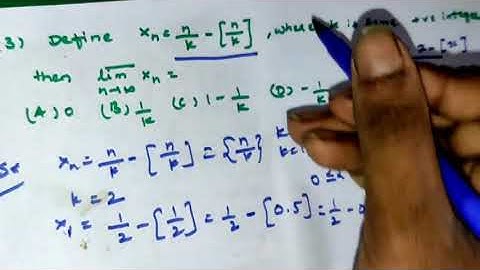 3) Define xₙ = n/k - [n/k], where k is some +ve integer
then lim n→∞ xₙ =
(A) 0 (B) 1/k (C) 1 - 1/k (D) - 1/k
xₙ = n/k - [n/k] = {n/k}
k = 2
0 ≤
x₁ = 1/2 - [1/2] = 1/2 - [0.5] = 1/2 - 0